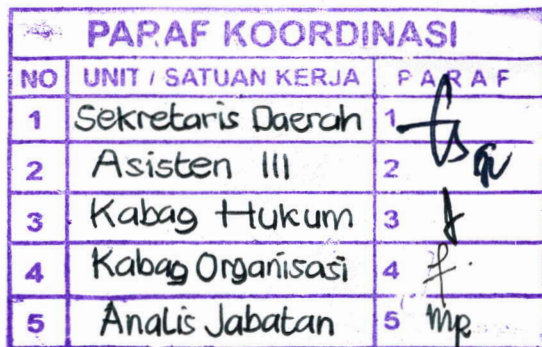 PARAF KOORDINASI
NO UNIT / SATUAN KERJA PARAF
1 Sekretaris Daerah 1
2 Asisten III 2
3 Kabag Hukum 3
4 Kabag Organisasi 4
5 Analis Jabatan 5